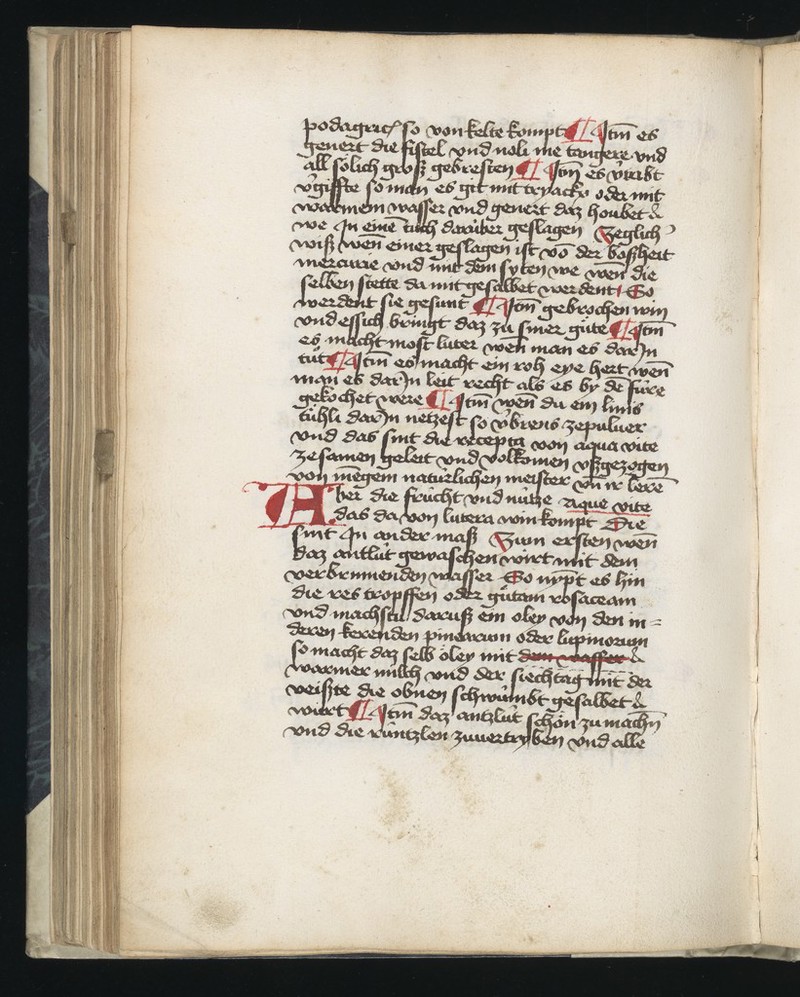 podagric so von kelte kompt ¶ Itm̄ es
genert die fistel vnd noli me tangere vnd
all sölich groß gebresten ¶ Itm̄ es v̓tribt
v̓giffte so man es git mit tryacks oder mit
warmem wasser vnd genert daz houbet
we In einē tůch darüber geslagen Zeglich
wiß wen̄ einer geslagen ist vō der boßheit
mercurie vnd mit dem syten we wen̄ die
selben stette da mit gesalbet werdent So
werdent sie gesunt ¶ Itm̄ gebrochen win
vnd essich bringt daz zů siner güte ¶ Itm̄
es macht most luter wen̄ man es dar In
tůt ¶ Itm̄ es macht ein roh eye hert wen̄
man es dar In leit recht als es by dē füre
gekochet were ¶ Itm̄ wen̄ du ein linis
tühli dar In netzest so v̓brens ze puluer
vnd das sint die recepta von aqua vite
ze samen geleit vnd volkomen vßgezogen
von mēgem natürlichen meister vn̄ ir lerē
Aber die frücht vnd nütze aque vite
das da von lutera win kompt Die
sint In ander maß Zum ersten wen̄
daz antlüt gewaschen wirt mit dem
verbrinnenden wasser So nypt es hin
die res tropffen oder gůtam rosaceam
vnd machstu daruß ein oley von den in=
deren kerenden pinearum oder lupinorum
so macht daz selb oley mit dem wasser
warmer milch vnd der siechtag mit der
veißte die obnen schwimbt gesalbet
wirt ¶ Itm̄ daz antzlüt schön zu machn̄
vnd die rüntzlen zuuertryben vnd alle